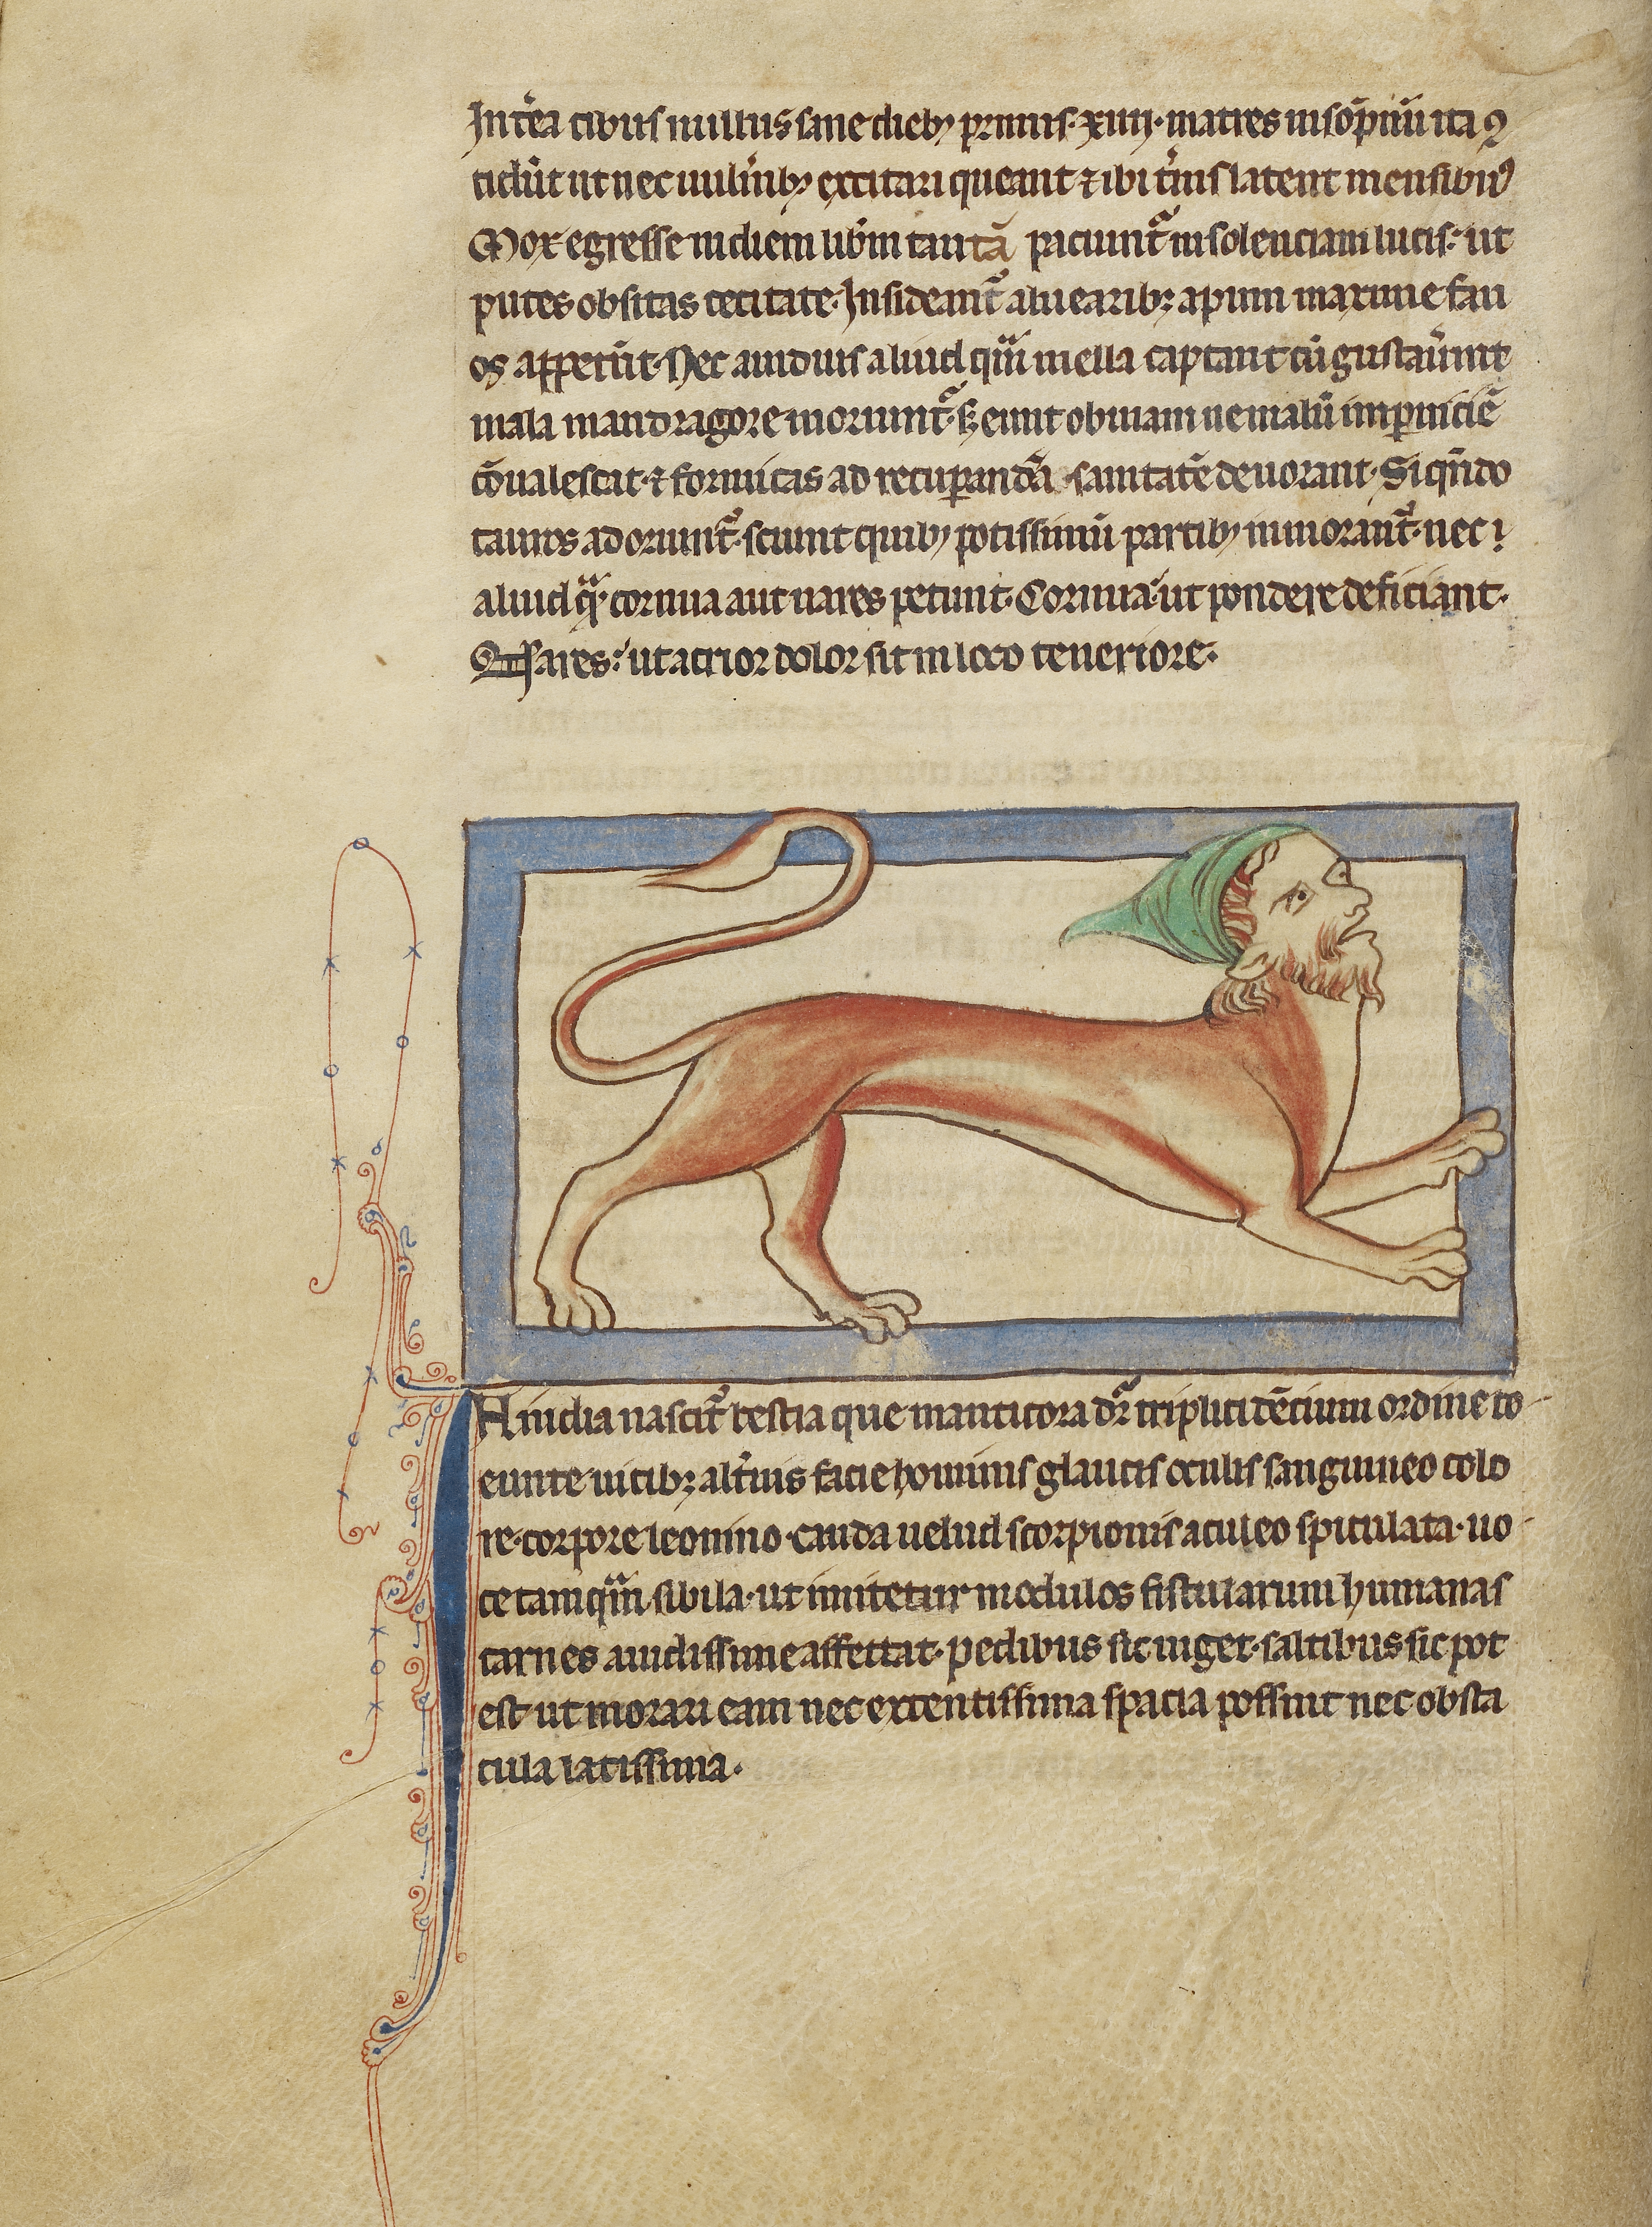 Int̾ea cibus nullus sane dieb; primis·xiiii·matres in sōpnū ita ꝯ
cidūt ut nec uuln̾ib; excitari queant ⁊ ibi t̾nis latent mensibuꝰ
Mox egresse in diem lib̾m tantā paciunt᷑ insolenciam lucis: ut
putes obsitas cecitate·Insideant᷑ aluearib; apum maxime fau
os appetūt·Nec auidius aliud qᷓm mella captant cū gustau̾int
mala mandragore moriunt᷑·sꝫ eunt obuiam ne malū in ꝑniciē
cōualescat·⁊ formicas ad recuꝑandā sanitatē deuorant·Si qn̄do
tauros adoriunt᷑·sciunt quib; potissimū partib; inmorant᷑·nec
aliud qᷓ·cornua aut nares petunt·Cornua·ut pondere deficiant·
Nares: ut acrior dolor sit in loco teneriore·
IN india nascit᷑ bestia que manticora dr̄ triplici dēcium ordine co
eunte uicib; alt̾nis facie hominis glaucis oculis sanguineo colo
re·corpore leonino·cauda uelud scorpionis aculeo spiculata·uo
ce tamqᷓm sibila·ut imitetur modulos fistularum humanas
carnes auidissime affectat·pedibus sic uiget·saltibus sic pot
est·ut morari eam nec extentissima spacia possint nec obsta
cula latissima·